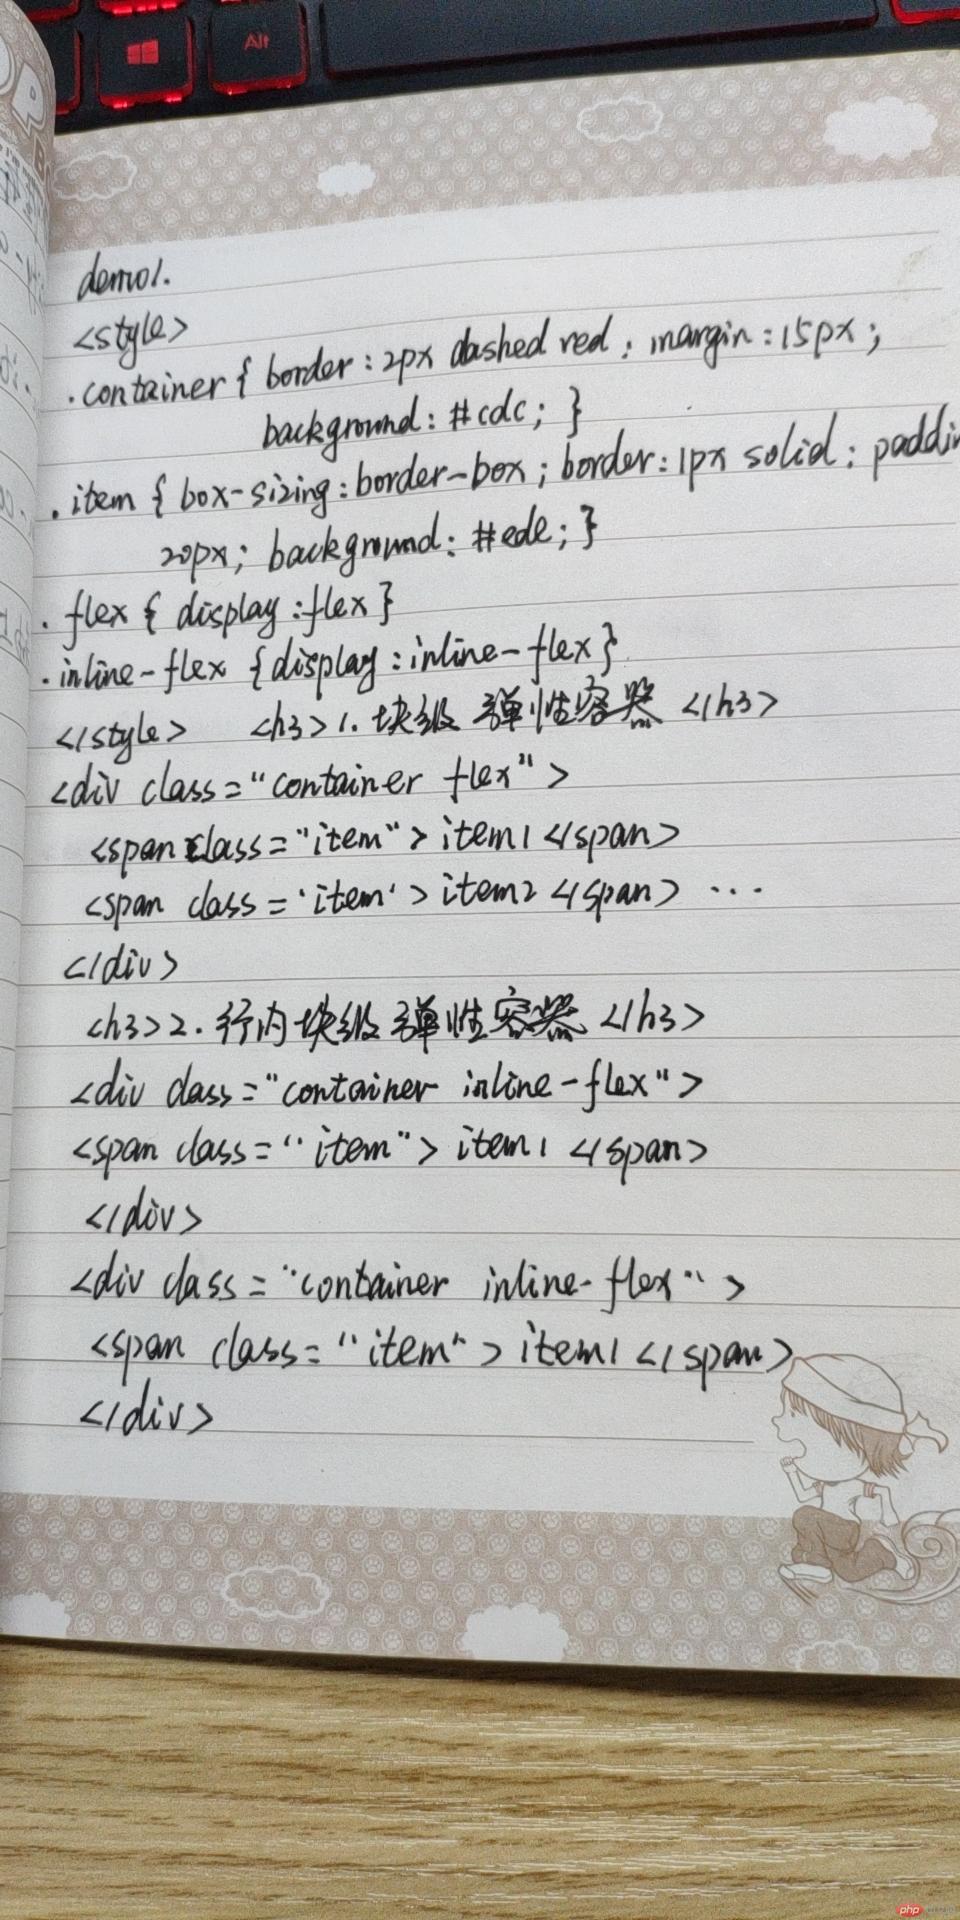 Alt
demo1.
<style>
.container { border : 2px dashed red ; margin : 15px ;
background : #cdc ; }
.item { box-sizing : border-box ; border : 1px solid ; paddin
20px ; background : #ede ; }
.flex { display : flex }
.inline-flex { display : inline-flex }
</style> <h3>1.块级 弹性容器 </h3>
<div class="container flex">
<span class="item"> item1 </span>
<span class='item'> item2 </span> ...
</div>
<h3>2.行内块级弹性容器 </h3>
<div class="container inline-flex">
<span class="item"> item1 </span>
</div>
<div class="container inline-flex">
<span class="item"> item1 </span>
</div>
php